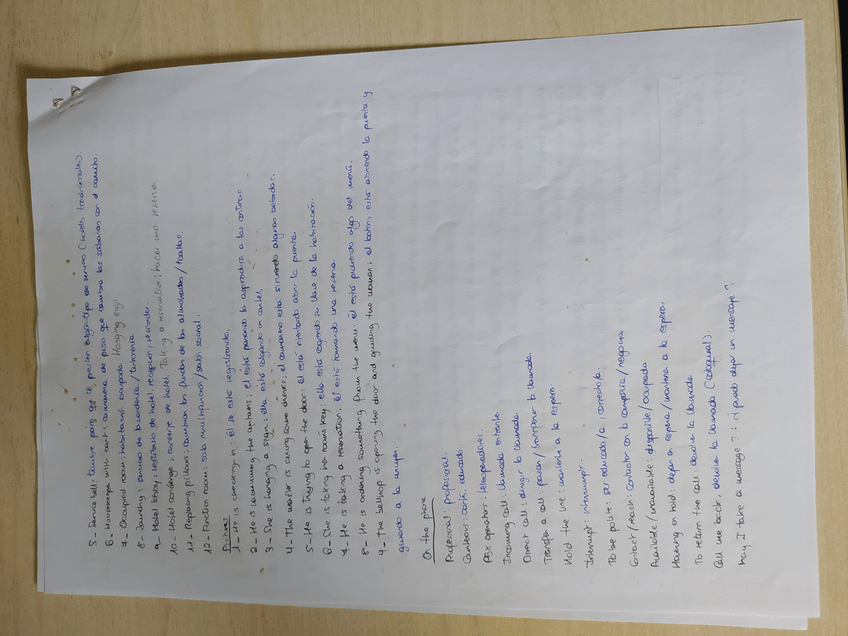 5- Service bell: timbre para que te presten algún tipo de servicio (hoteles tradicionales).
6- Housekeeper with cart: camarera de piso que cambia las sabanas con el carrito.
7- Occupied room: habitación ocupada. Hanging sign
8- Laundry: servicio de lavandería / tintorería
9- Hotel lobby: vestíbulo de hotel, recepción, recibidor.
10- Hotel concierge: conserje de hotel. Taking a reservation: hacer una reserva
11- Replacing pillows: cambiar las fundas de las almohadas / toallas.
12- Function room: sala multiusos / salón social.
Pictures:
1- He is checking-in: Él se está registrando.
2- He is vacuuming the curtains: el está pasando la aspiradora a las cortinas
3- She is hanging a sign: ella está colgando un cartel.
4- The waiter is serving some drinks: el camarero está sirviendo algunas bebidas.
5- He is trying to open the door: él está intentando abrir la puerta.
6- She is taking her room's key: ella está cogiendo su llave de la habitación.
7- He is taking a reservation: Él está tomando una reserva.
8- He is ordering something from the menu: él está pidiendo algo del menú.
9- The bellhop is opening the door and guiding the woman: el botones está abriendo la puerta y
guiando a la mujer.
On the phone
Professional: profesional.
Courteous: cortés, educado
PBX operators: teleoperadores.
Incoming call: llamada entrante.
Direct call: dirigir la llamada.
Transfer a call: pasar / transferir la llamada.
Hold the line: mantente a la espera
Interrupt: interrumpir.
To be polite: ser educado/a, correcto/a.
Contact / reach: contactar con la compañía / negocios
Available / unavailable: disponible / ocupado
Having on hold: dejar en espera / mantener a la espera.
To return the call: devolver la llamada
Call me back: devolver la llamada (coloquial).
May I take a message?: ¿puedo dejar un mensaje?